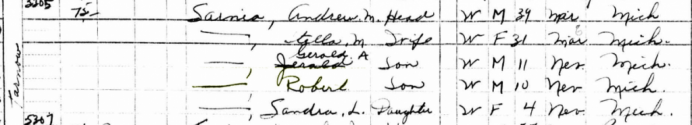 3205 Sarnia, Andrew M. Head W M 39 Mar Mich
M Wife W F 31 Mar Mich.
Gerald A
Gerald Son W M 11 Nev Mich.
Robert Son W M 10 Nev Mich.
Sandra, L. Daughter W F 4 Nev Mich.